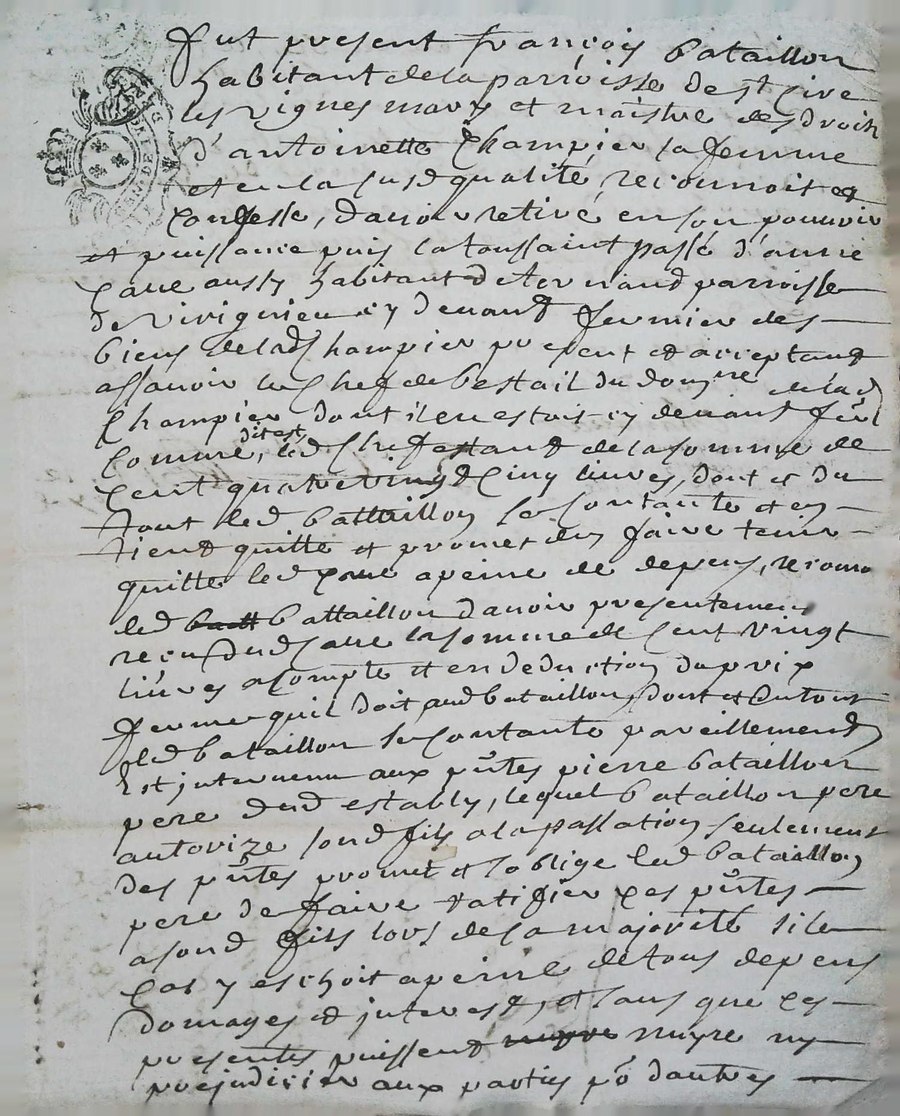 fut present françois bataillon
habitant de la parroisse de st Cire
les vignes mary et maistre des droits
d'antoinette Champier sa femme
et en la susd qualité, reconnoit et
Confesse, d'avoir retiré en son pouvoir
et puissance puis la toussaint passé d'anne
aussy habitant de parroisse
de virignieu cy devant fermier des
biens de lad Champier present et acceptant
assavoir le Chef de bestail du domne de lad
Champier dont il en estoit cy devant
Comme dit est, led Chef estant de la somme de
Cent quatre vingt Cinq livres, dont et du
tout led battaillon se Contante et en
tient quitte et promet en faire tenir
quitte led a peine de depens, reconoit
led battaillon d'avoir presentement
receu dud la somme de Cent vingt
livres a Compte et en deduction du prix
ferme quil doit aud bataillon, dont et du tout
led bataillon se Contante pareillement
Est intervenu aux pntes pierre bataillon
pere dud estably, lequel bataillon pere
autorize sond fils a la passation seulement
des pntes promet et s'oblige led bataillon
pere de faire ratifier Ces pntes
a sond fils lors de sa majorité si le
Cas y eschoit a peine de tous depens
domages et interest, et sans que Ces
presentes puissent nuyre ny
prejudicier aux parties po d'autres